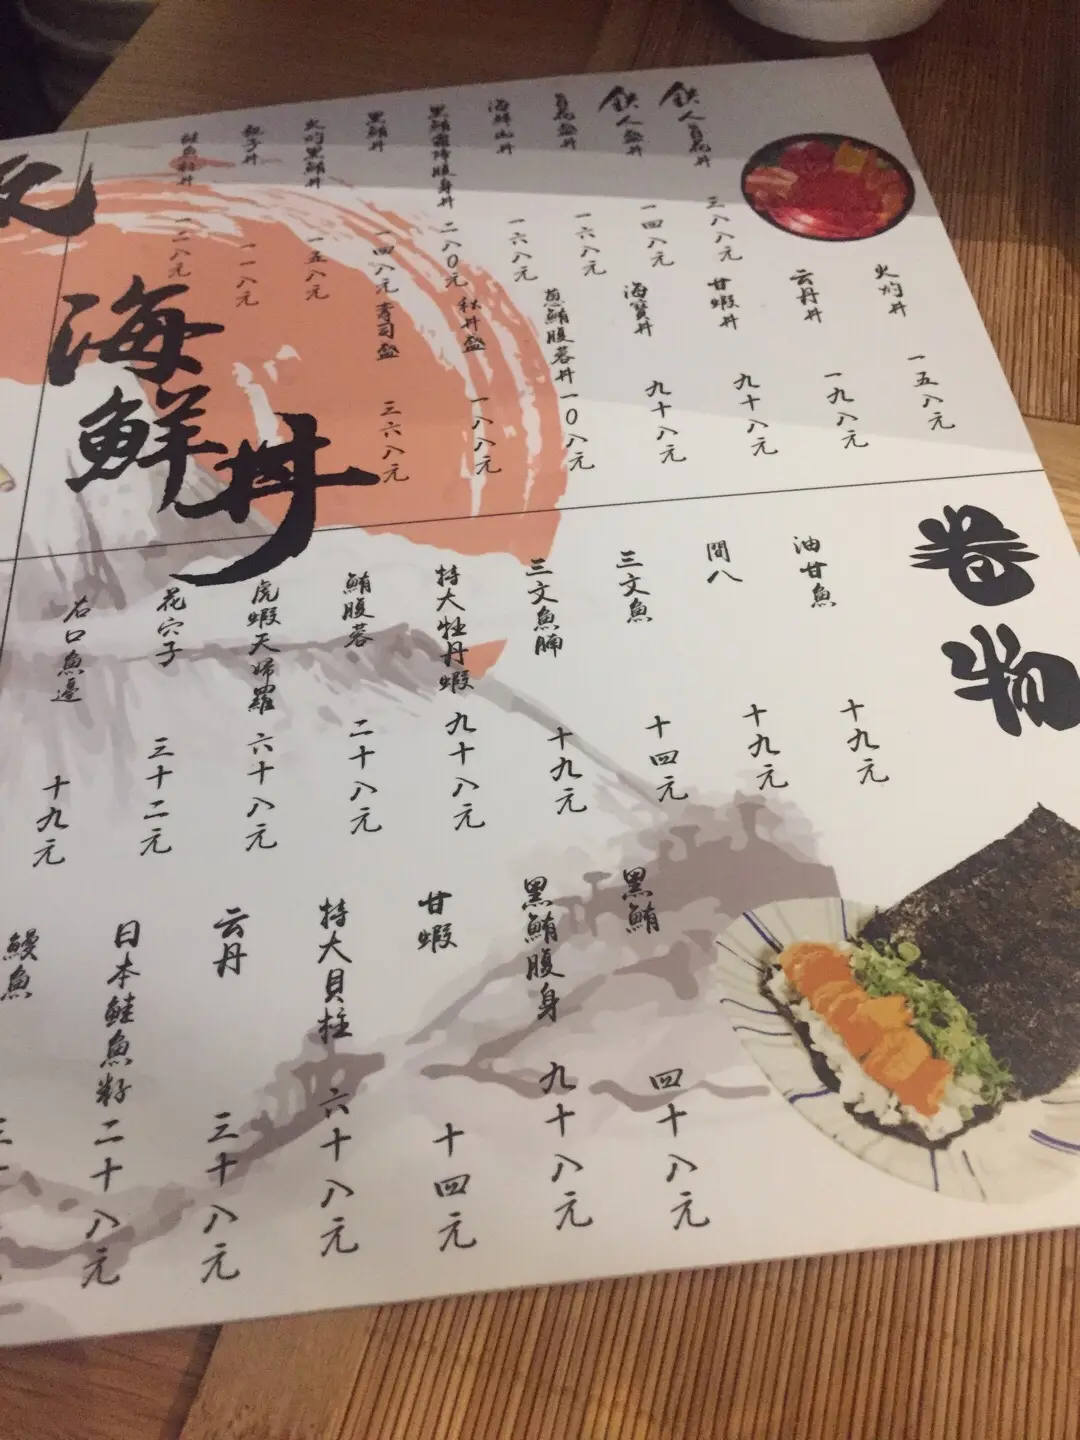 海鮮丼
鉄人花丼 三八八元
鉄人盛丼 一四八元
盛丼 一六八元
海鮮丼 一六八元
黑鮪霜降腹身丼 二八0元
黑鮪丼 一四八元
火灼黑鮪丼 一五八元
親子丼 一一八元
鮭魚籽丼 一二八元
火灼丼 一五八元
云丹丼 一九八元
甘蝦丼 九十八元
海寶丼 九十八元
葱鮪腹蓉丼 一0八元
秋丼盛 一八八元
壽司盛 三六八元
卷物
油甘魚 十九元
間八 十九元
三文魚 十四元
三文魚腩 十九元
特大牡丹蝦 九十八元
鮪腹蓉 二十八元
虎蝦天婦羅 六十八元
花穴子 三十二元
左口魚邊 十九元
黑鮪 四十八元
黑鮪腹身 九十八元
甘蝦 十四元
特大貝柱 六十八元
云丹 三十八元
日本鮭魚籽 二十八元
鰻魚